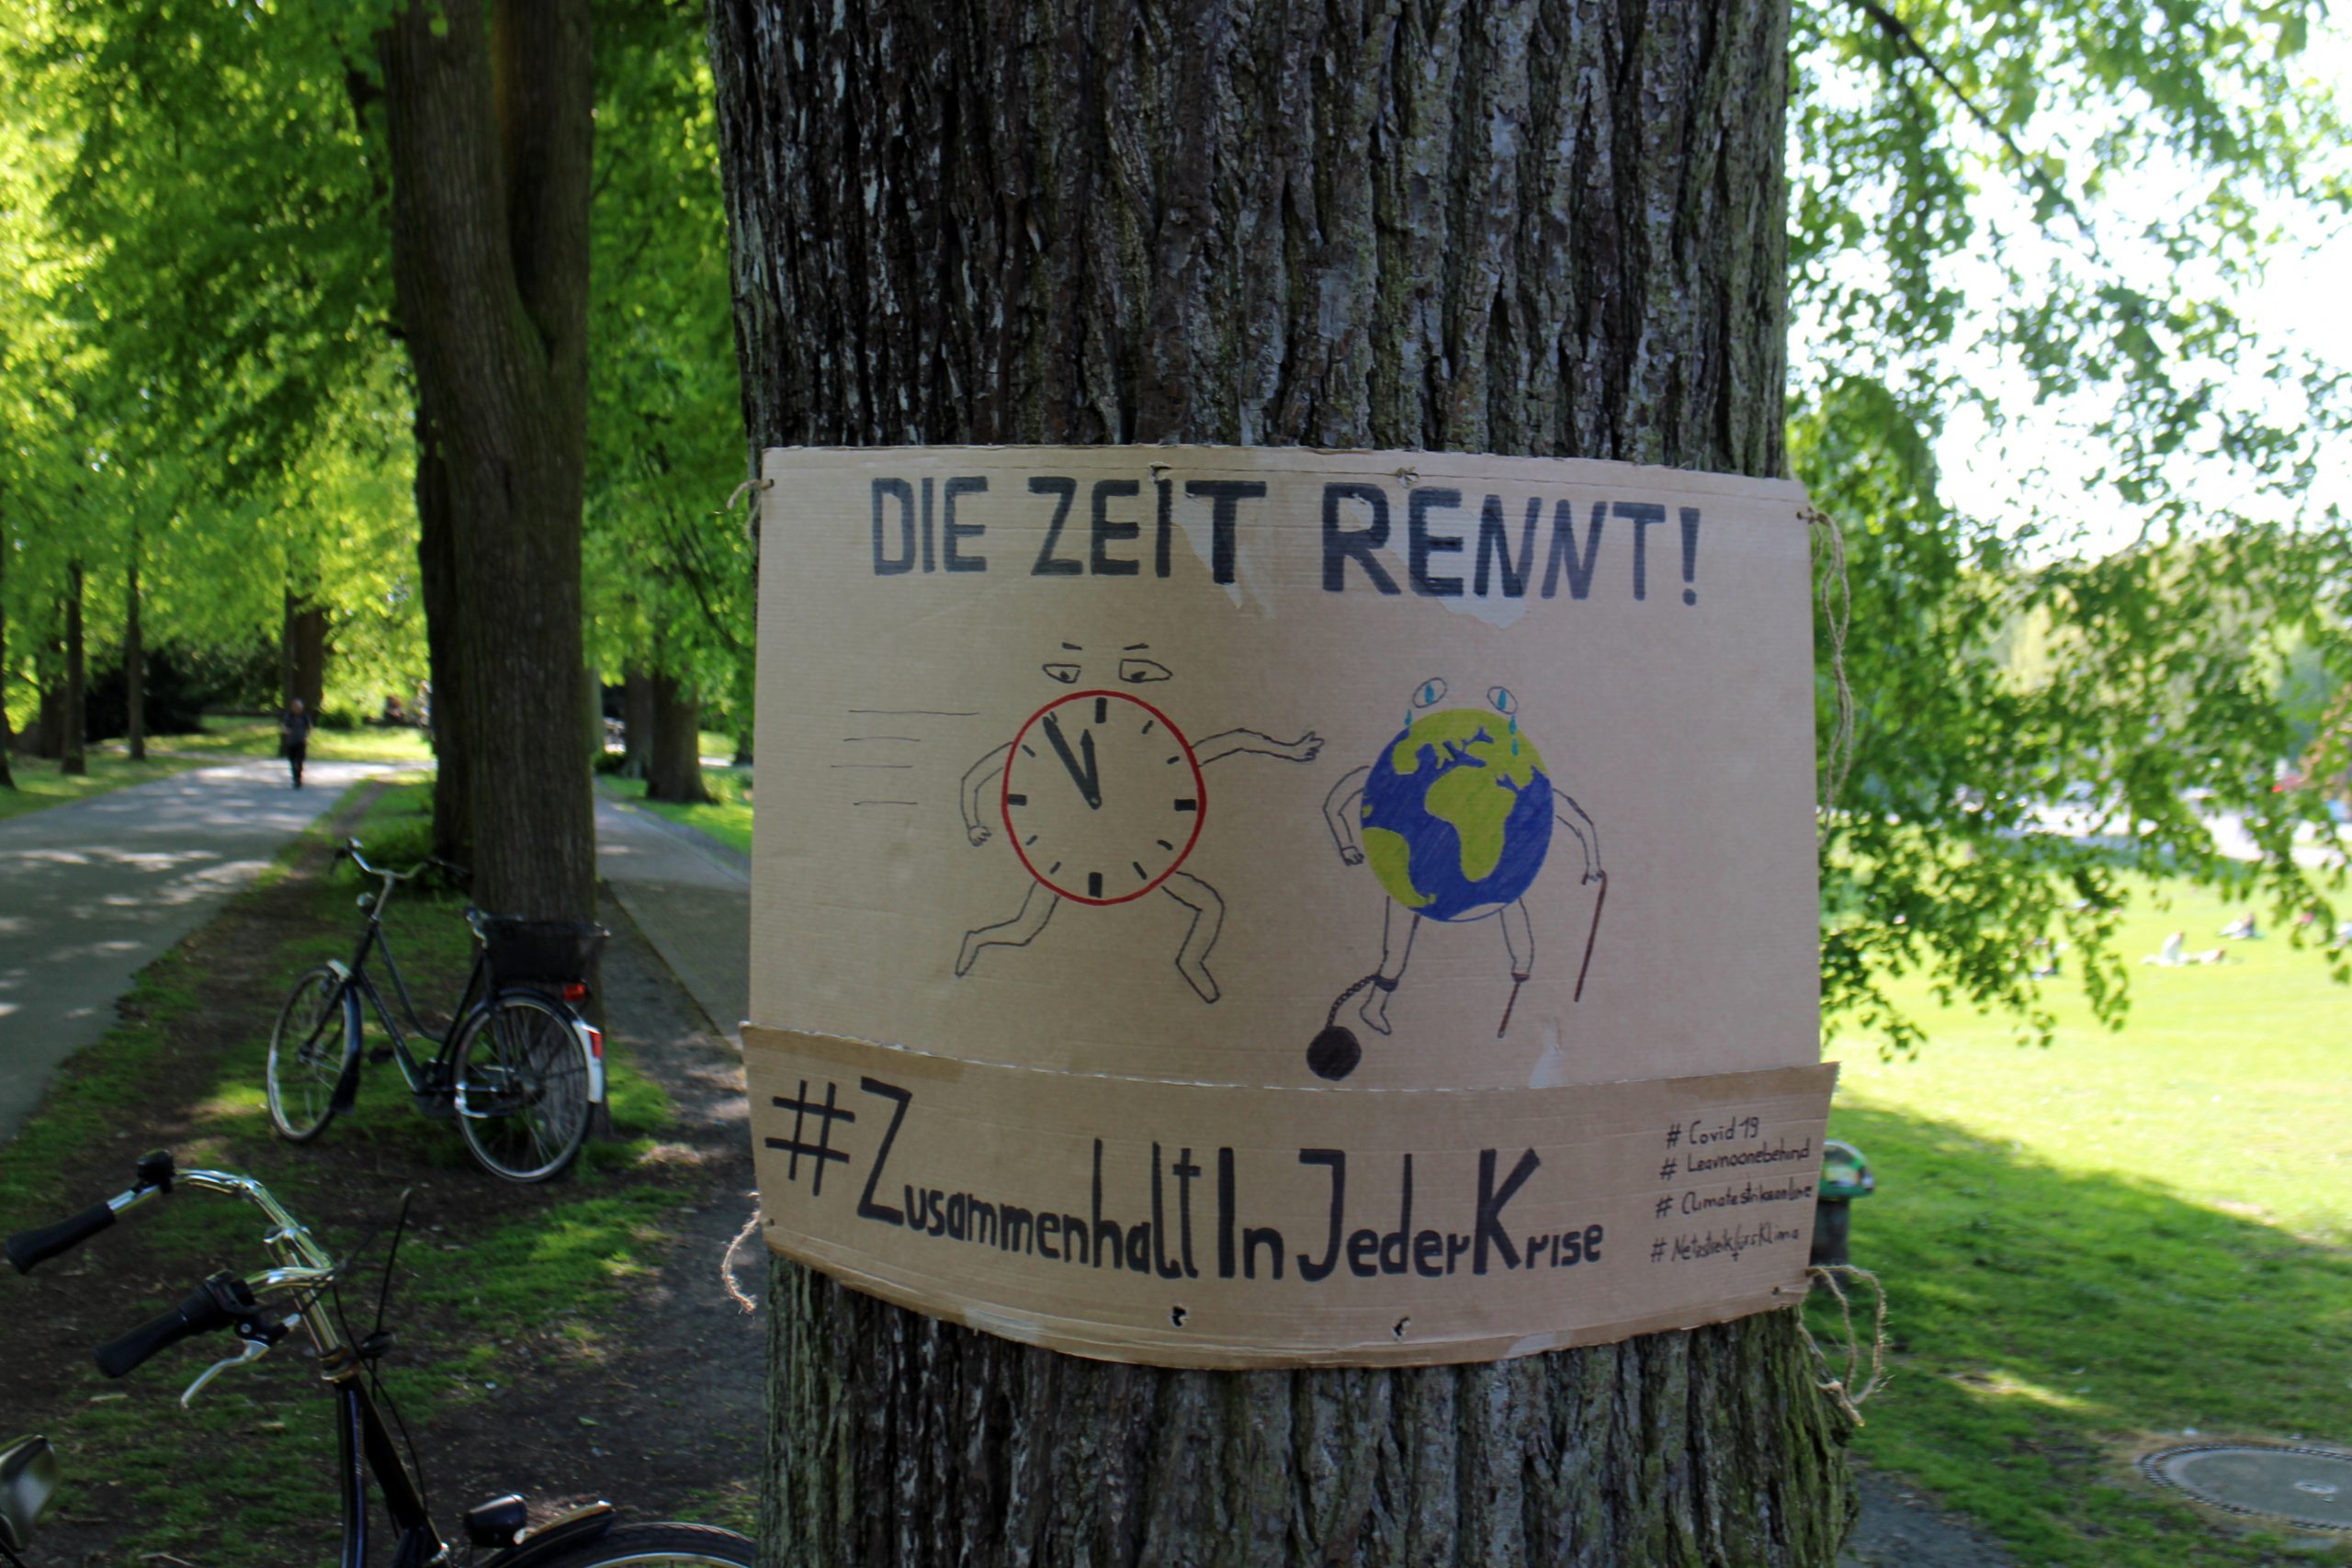 DIE ZEIT RENNT!
#ZusammenhaltInJederKrise
# Covid 19
# Leavnoonebehind
# Climatestrikeonline
# NetzstreikfürsKlima